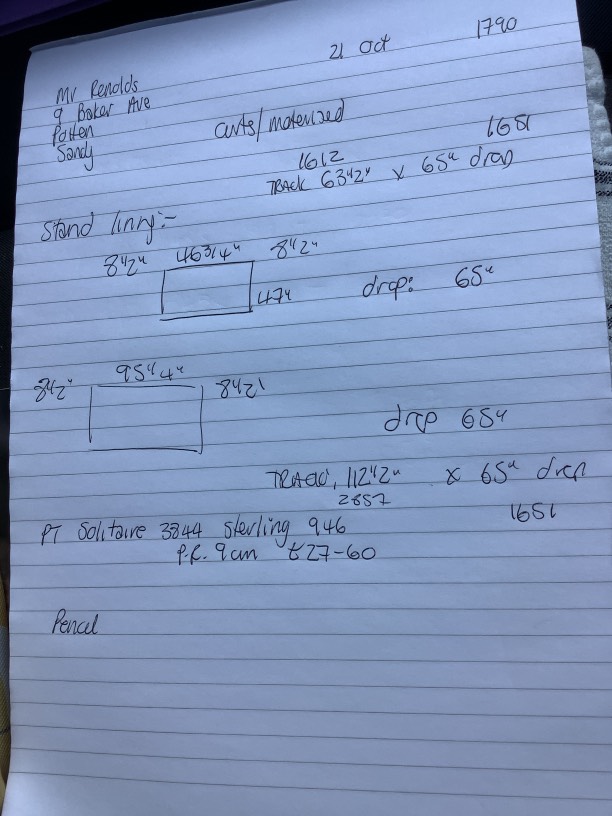 21 Oct 1790
Mr Renolds
9 Baker Ave
Potten
Sandy
curts/moterised
1612 1651
TRACK 63 1/2" x 65" drop
Stand lining:-
8 1/2" 46 3/4" 8 1/2"
47" drop: 65"
8 1/2" 95 1/4" 8 1/2"
drop 65"
TRACK, 112 1/2" x 65" drop
2857 1651
PT Solitaire 3844 Sterling 946
P.R. 9cm £27-60
Pencel